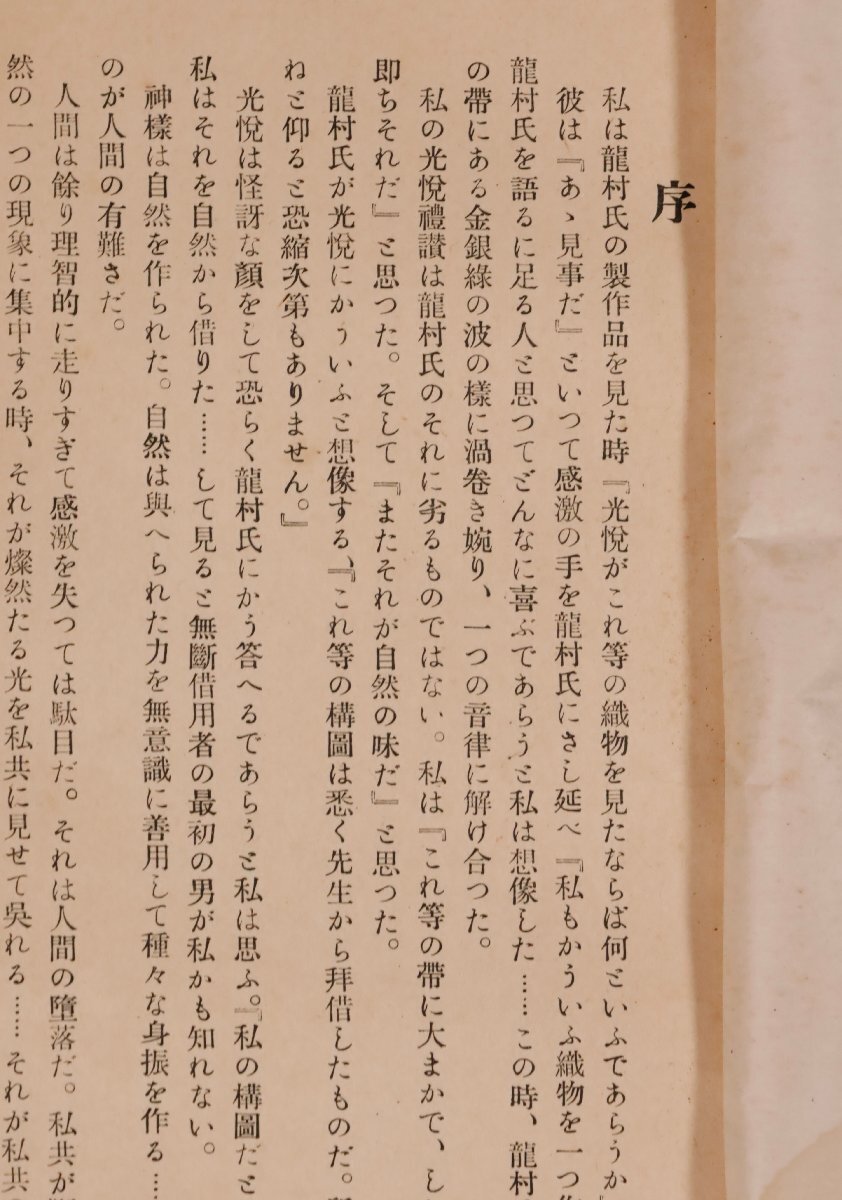 序
私は龍村氏の製作品を見た時『光悅がこれ等の織物を見たならば何といふであらうか』
彼は『あゝ見事だ』といつて感激の手を龍村氏にさし延べ『私もかういふ織物を一つ
龍村氏を語るに足る人と思つてどんなに喜ぶであらうと私は想像した……この時、龍村
の帶にある金銀綠の波の樣に渦卷き婉り、一つの音律に解け合つた。
私の光悅禮讃は龍村氏のそれに劣るものではない。私は『これ等の帶に大まかで、し
即ちそれだ』と思つた。そして『またそれが自然の味だ』と思つた。
龍村氏が光悅にかういふと想像する、『これ等の構圖は悉く先生から拜借したものだ。
ねと仰ると恐縮次第もありません。』
光悅は怪訝な顏をして恐らく龍村氏にかう答へるであらうと私は思ふ。『私の構圖だと
私はそれを自然から借りた……して見ると無斷借用者の最初の男が私かも知れない。
神樣は自然を作られた。自然は與へられた力を無意識に善用して種々な身振を作る…
のが人間の有難さだ。
人間は餘り理智的に走りすぎて感激を失つては駄目だ。それは人間の墮落だ。私共が
然の一つの現象に集中する時、それが燦然たる光を私共に見せて吳れる……それが私共